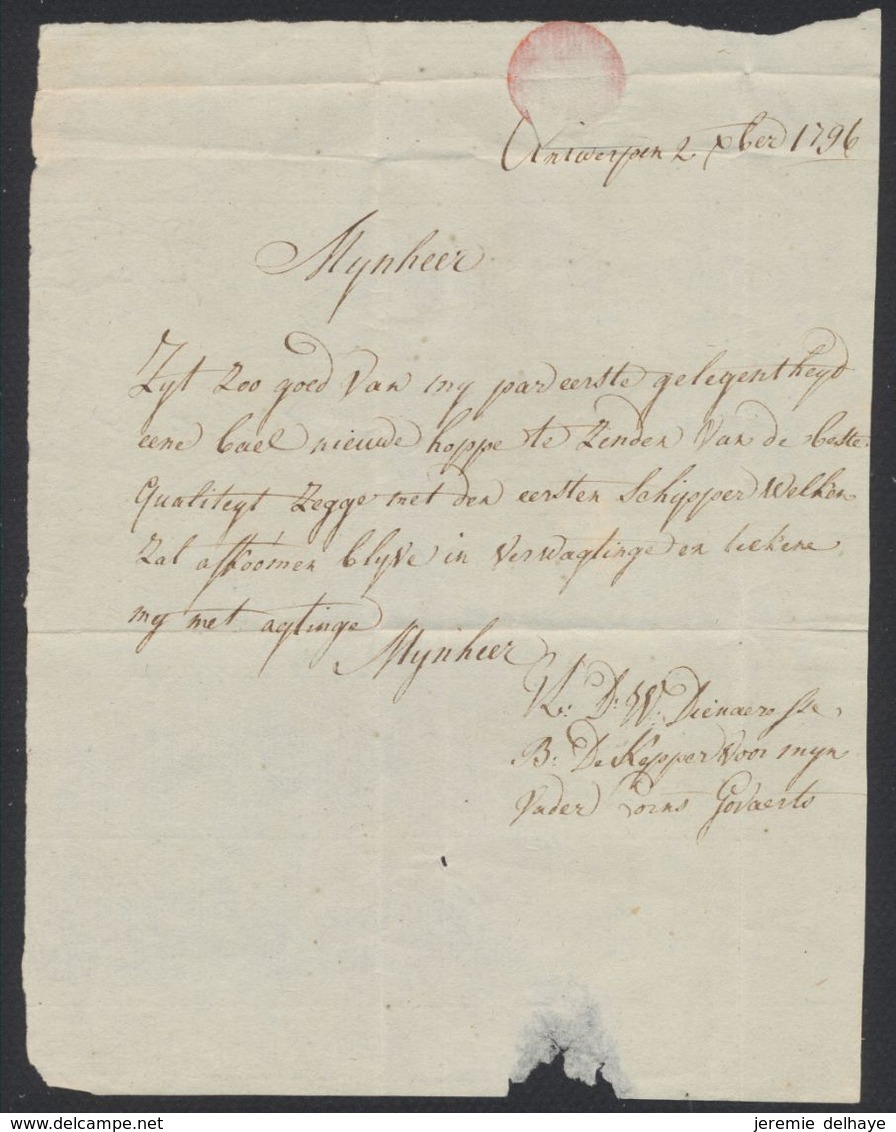 Antwerpen 2 xber 1796
Mynheer
Zyt zoo goed van my par eerste gelegentheyd
eene bael nieuwe hoppe te zenden van de beste
qualiteyt zegge met den eersten schipper welken
zal afkoomen blyve in verwagtinge en teekene
my met agtinge
Mynheer
U: D: W: Dienaersse
B: De Kepper voor myn
vader Govaerts
delcampe.net
jeremie delhaye